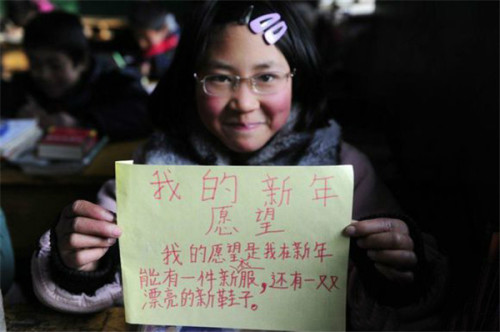 我的新年
愿望
我的愿望是我在新年
能有一件新服，还有一双
漂亮的新鞋子。